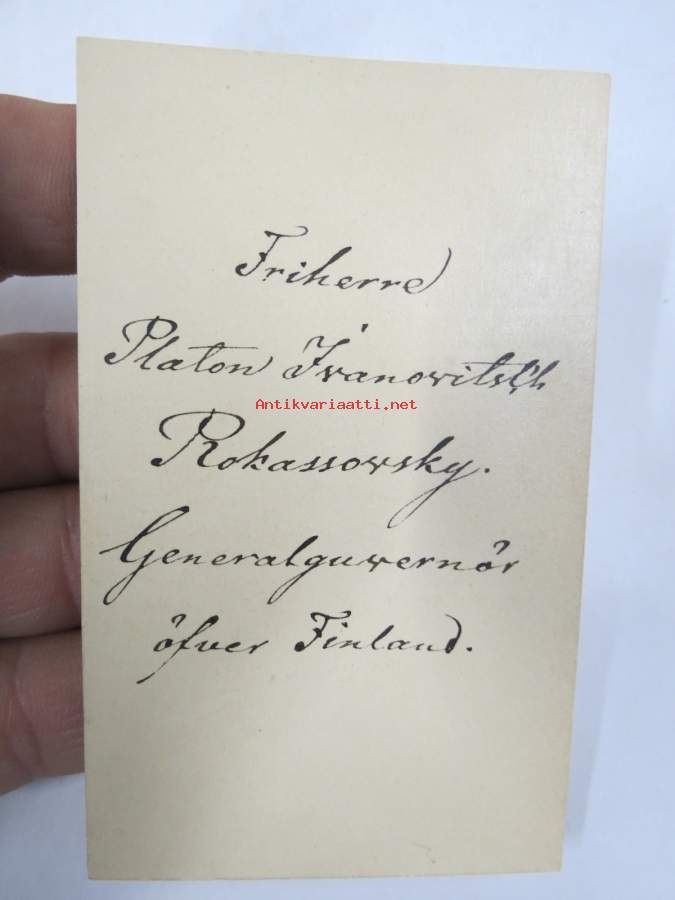 Friherre
Platon Ivanovitsch
Antikvariaatti.net
Rokassowsky.
Generalguvernör
öfver Finland.